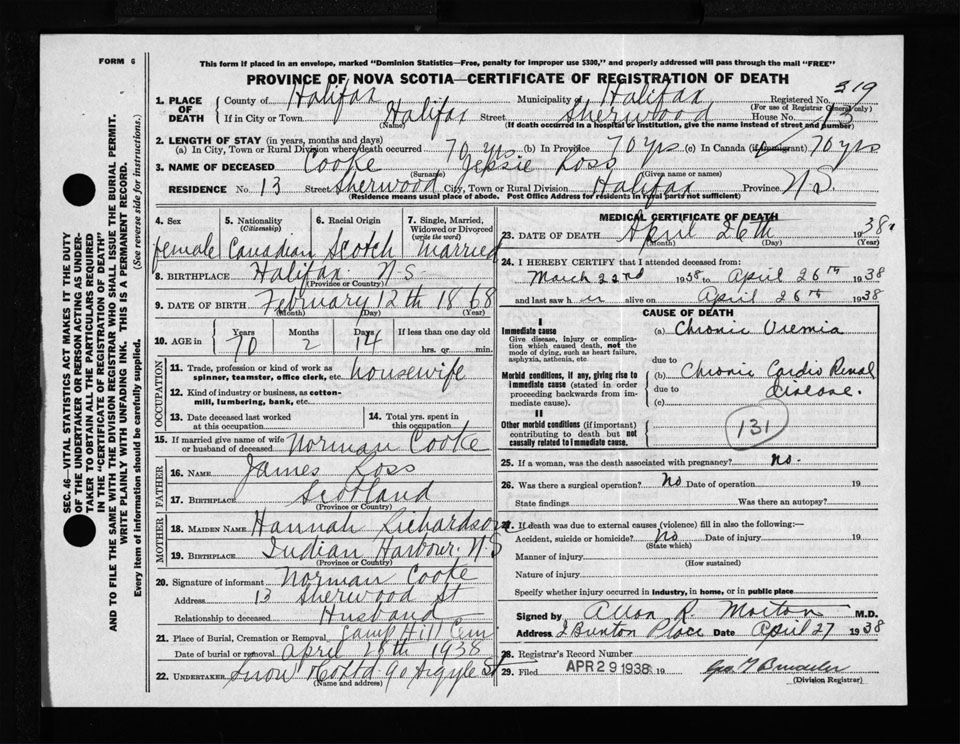 FORM 6
This form if placed in an envelope, marked "Dominion Statistics—Free, penalty for improper use $300," and properly addressed will pass through the mail "FREE"
PROVINCE OF NOVA SCOTIA—CERTIFICATE OF REGISTRATION OF DEATH
SEC. 46—VITAL STATISTICS ACT MAKES IT THE DUTY
OF THE UNDERTAKER OR PERSON ACTING AS UNDER-
TAKER TO OBTAIN ALL THE PARTICULARS REQUIRED
IN THE "CERTIFICATE OF REGISTRATION OF DEATH"
AND TO FILE THE SAME WITH THE DIVISION REGISTRAR WHO SHALL ISSUE THE BURIAL PERMIT.
WRITE PLAINLY WITH UNFADING INK. THIS IS A PERMANENT RECORD.
Every item of information should be carefully supplied. (See reverse side for instructions.)
1. PLACE OF DEATH County of Halifax Municipality of Halifax Registered No. 319
(For use of Registrar General only)
If in City or Town Halifax Street Sherwood House No. 13
(Name) (If death occurred in a hospital or institution, give the name instead of street and number)
2. LENGTH OF STAY (in years, months and days)
(a) In City, Town or Rural Division where death occurred 70 yrs (b) In Province 70 yrs (c) In Canada (if immigrant) 70 yrs
3. NAME OF DECEASED Cooke Jessie Ross
(Surname) (Given name or names)
RESIDENCE No. 13 Street Sherwood City, Town or Rural Division Halifax Province N.S.
(Residence means usual place of abode. Post Office Address for residents in rural parts not sufficient)
4. Sex 5. Nationality (Citizenship) 6. Racial Origin 7. Single, Married, Widowed or Divorced (write the word)
female Canadian Scotch Married
8. BIRTHPLACE Halifax N.S
(Province or Country)
9. DATE OF BIRTH February 12th 1868
(Month) (Day) (Year)
10. AGE in Years 70 Months 2 Days 14 If less than one day old hrs. or min.
OCCUPATION
11. Trade, profession or kind of work as spinner, teamster, office clerk, etc. housewife
12. Kind of industry or business, as cotton-mill, lumbering, bank, etc.
13. Date deceased last worked at this occupation 14. Total yrs. spent in this occupation
15. If married give name of wife or husband of deceased Norman Cooke
FATHER
16. NAME James Ross
17. BIRTHPLACE Scotland
(Province or Country)
MOTHER
18. MAIDEN NAME Hannah Richardson
19. BIRTHPLACE Indian Harbour. N.S
(Province or Country)
20. Signature of informant Norman Cooke
Address 13 Sherwood St
Relationship to deceased Husband
21. Place of Burial, Cremation or Removal Camp Hill Cem
Date of burial or removal April 28th 1938
22. UNDERTAKER Snow Co Ltd 90 Argyle St
(Name and address)
MEDICAL CERTIFICATE OF DEATH
23. DATE OF DEATH April 26th 1938
(Month) (Day) (Year)
24. I HEREBY CERTIFY that I attended deceased from:
March 22nd 1938 to April 26th 1938
and last saw h er alive on April 26th 1938
CAUSE OF DEATH
I
Immediate cause (a) Chronic Uremia
Give disease, injury or complication which caused death, not the mode of dying, such as heart failure, asphyxia, asthenia, etc.
due to
Morbid conditions, if any, giving rise to immediate cause (stated in order proceeding backwards from immediate cause).
(b) Chronic Cardio Renal
due to disease.
(c)
II
Other morbid conditions (if important) contributing to death but not causally related to immediate cause.
131
25. If a woman, was the death associated with pregnancy? no.
26. Was there a surgical operation? No Date of operation 19
State findings Was there an autopsy?
27. If death was due to external causes (violence) fill in also the following:—
Accident, suicide or homicide? No Date of injury 19
(State which)
Manner of injury
(How sustained)
Nature of injury
Specify whether injury occurred in industry, in home, or in public place
Signed by Allan R. Morton M.D.
Address Place Date April 27 1938
28. Registrar's Record Number
29. Filed APR 29 1938 19
(Division Registrar)